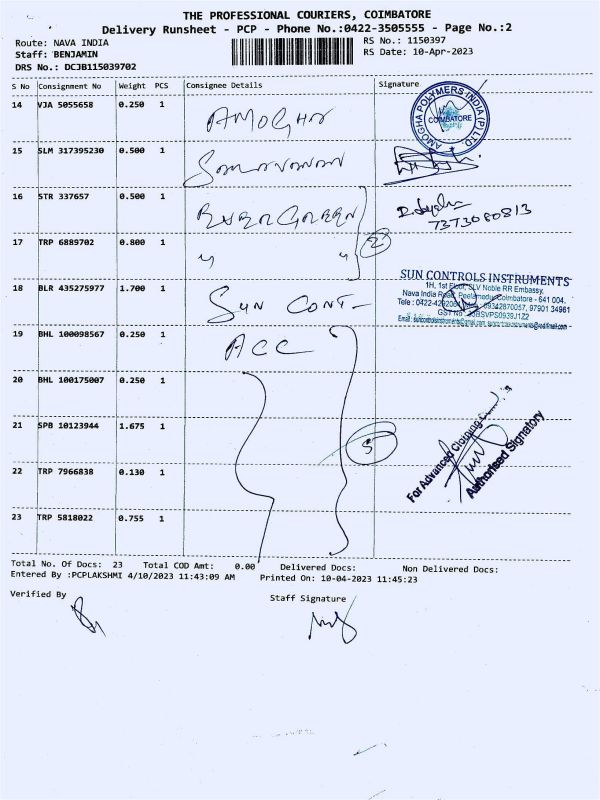 THE PROFESSIONAL COURIERS, COIMBATORE
Delivery Runsheet - PCP - Phone No.:0422-3505555 - Page No.:2
Route: NAVA INDIA
RS No.: 1150397
Staff: BENJAMIN
RS Date: 10-Apr-2023
DRS No.: DCJB115039702
S No Consignment No Weight PCS Consignee Details Signature
14 VJA 5055658 0.250 1 AMOGHA
AMOGHA POLYMERS INDIA (P) LTD.
COIMBATORE
15 SLM 317395230 0.500 1
16 STR 337657 0.500 1 EVERGREEN
7373080813
17 TRP 6889702 0.800 1 " 2
18 BLR 435275977 1.700 1 SUN CONT-
SUN CONTROLS INSTRUMENTS
1H, 1st Floor, SLV Noble RR Embassy,
Nava India Road, Peelamedu, Coimbatore - 641 004.
19 BHL 100098567 0.250 1 ACC
20 BHL 100175007 0.250 1
21 SPB 10123944 1.675 1 5
For Advanced Clothing
Authorised Signatory
22 TRP 7966838 0.130 1
23 TRP 5818022 0.755 1
Total No. Of Docs: 23 Total COD Amt: 0.00 Delivered Docs: Non Delivered Docs:
Entered By :PCPLAKSHMI 4/10/2023 11:43:09 AM Printed On: 10-04-2023 11:45:23
Verified By Staff Signature